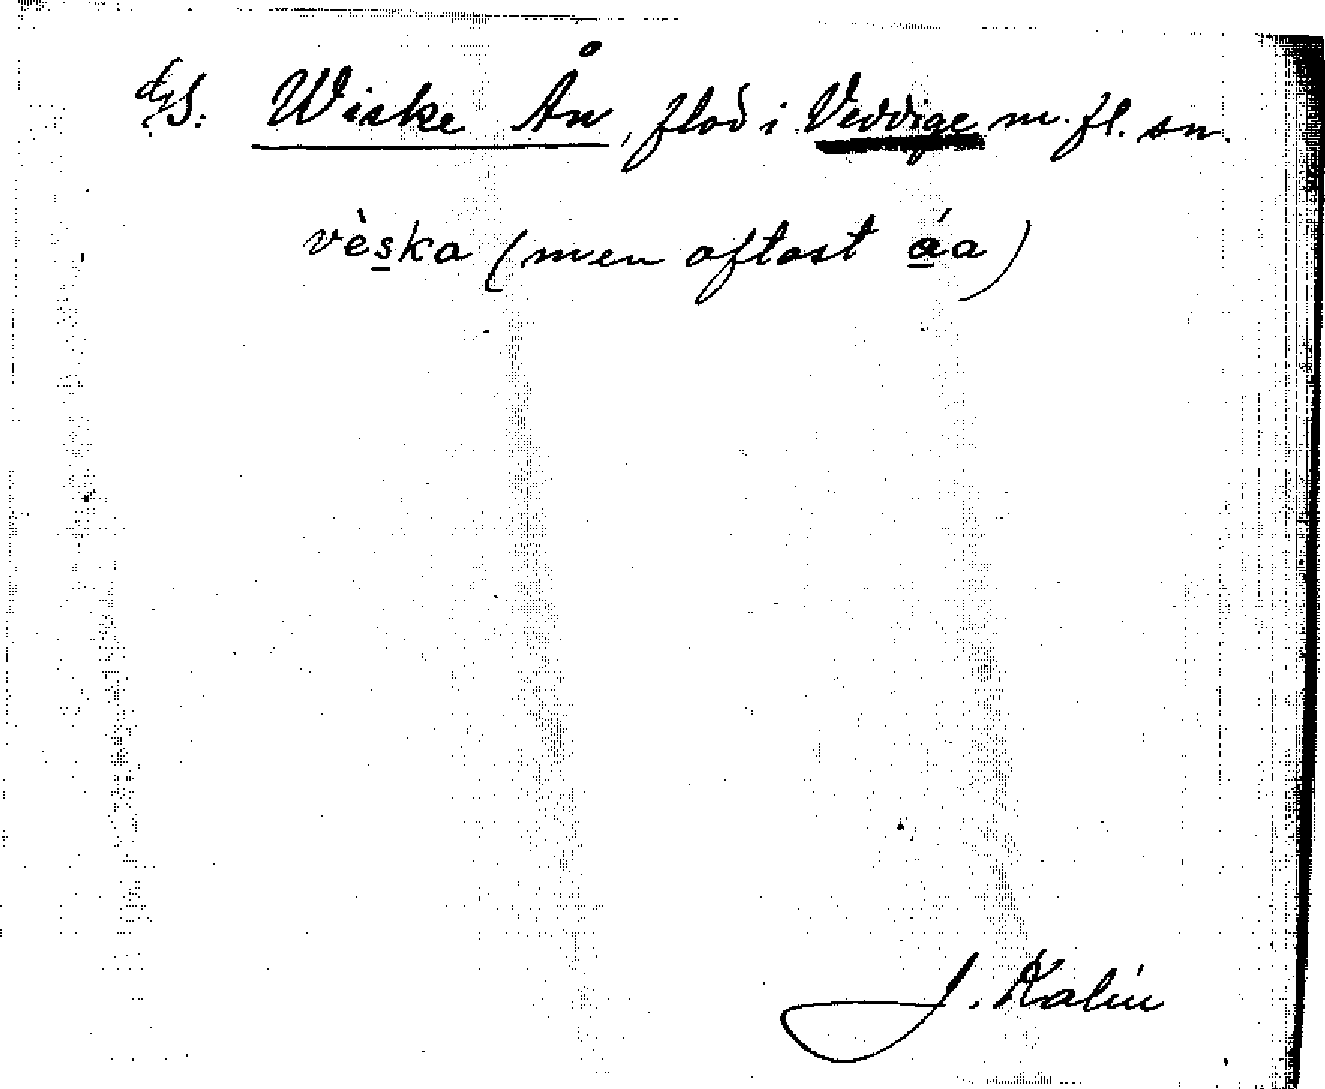 GS. Wiske Ån, flod i Veddige m. fl. sn.
vèska (men oftast áa)
J. Kalén